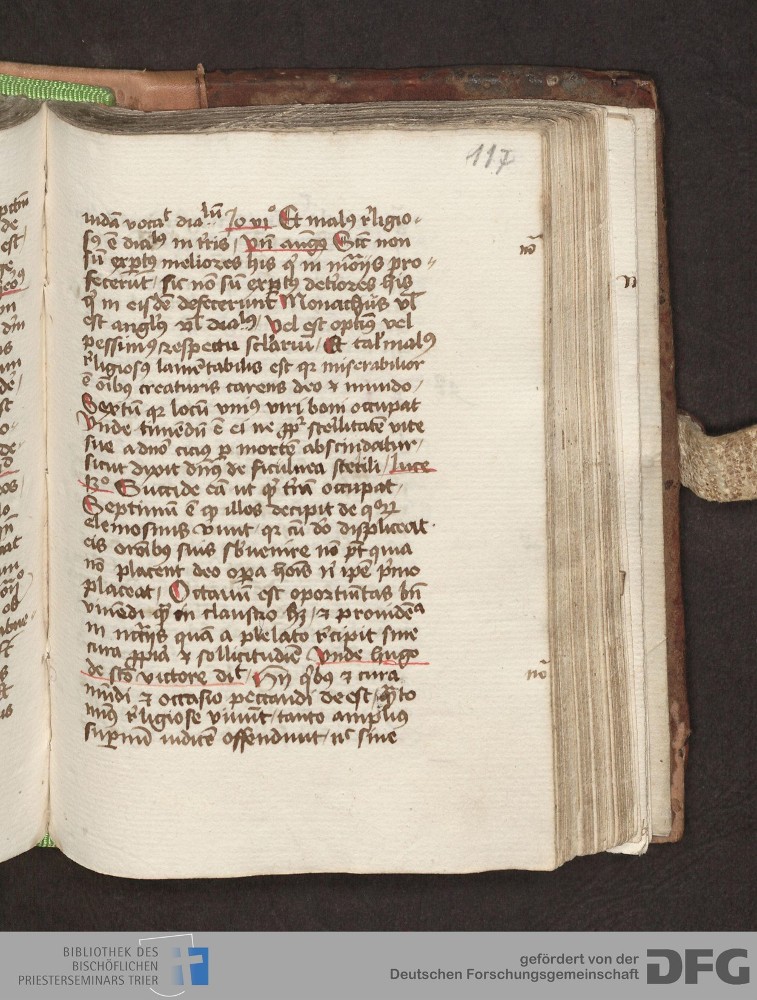 117
iudā vocat dialū Jo vi⁰ Et malus religio-
sus ē dialus in tris / Vn̄ aug⁹ Sic non
sū exptus meliores his q in mōriis pro=
fecerūt / sic nō sū exptus detiores his
q in eisdē defecerunt Monachus vl
est anglus vl dialus / vel est optius vel
pessimus respectu scłariū / Et tal malus
religiosus lamētabilis est qr miserabilior
ē oībus creaturis carens deo et mundo /
Sextū qr locū vnius viri boni occupat
Vnde timendū ē ei ne ppt sterilitatē vite
sue a dno cicius p mortē abscindatur /
sicut dixit dn̄s de ficulnea sterili / luce
xiii⁰ Succide eā ut q trā occupat /
Septimū ē q illos decipit de qorum
elemosinis viuit / qr cū dō displiceat
eis orōibus suis subuenire nō pt quia
nō placent deo opera hoīs ni ipe primo
placeat / Octauū est oportunitas bn̄
viuendi quā in claustro hz / et prouidēa
in necriis quā a prelato recipit sine
cura ppria et sollicitudīe Vnde hugo
de scō victore dicit / Hii qibus et cura
mūdi et occasio peccandi deest / quāto
minus religiose viuūt / tanto amplius
supernū iudicē offendunt / nec sine
nō
nō
BIBLIOTHEK DES
BISCHÖFLICHEN
PRIESTERSEMINARS TRIER
gefördert von der
Deutschen Forschungsgemeinschaft
DFG